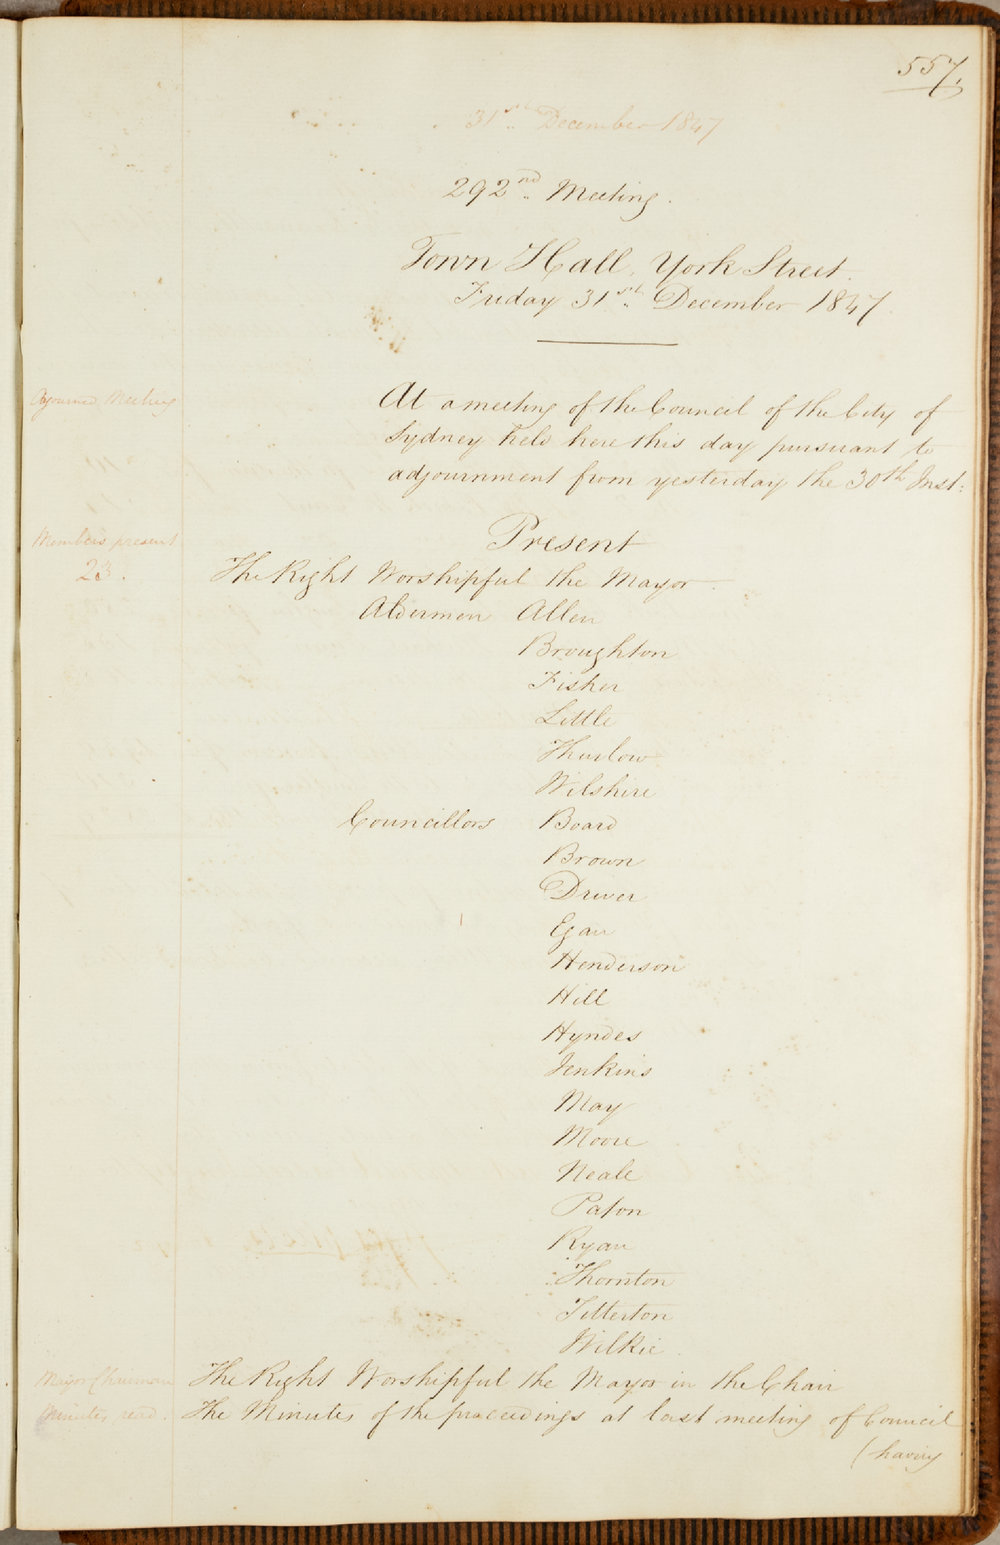 557.
31st December 1847
292nd Meeting.
Town Hall, York Street.
Friday 31st December 1847.
Adjourned Meeting
At a meeting of the Council of the City of
Sydney held here this day pursuant to
adjournment from yesterday the 30th Inst:
Present
Members present
23.
The Right Worshipful the Mayor.
Aldermen Allen
Broughton
Fisher
Little
Thurlow
Wilshire
Councillors Board
Brown
Driver
Egan
Henderson
Hill
Hyndes
Jenkins
May
Moore
Neale
Paton
Ryan
Thornton
Titterton
Wilkie.
Mayor Chairman The Right Worshipful the Mayor in the Chair
Minutes read. The Minutes of the proceedings at last meeting of Council
(having